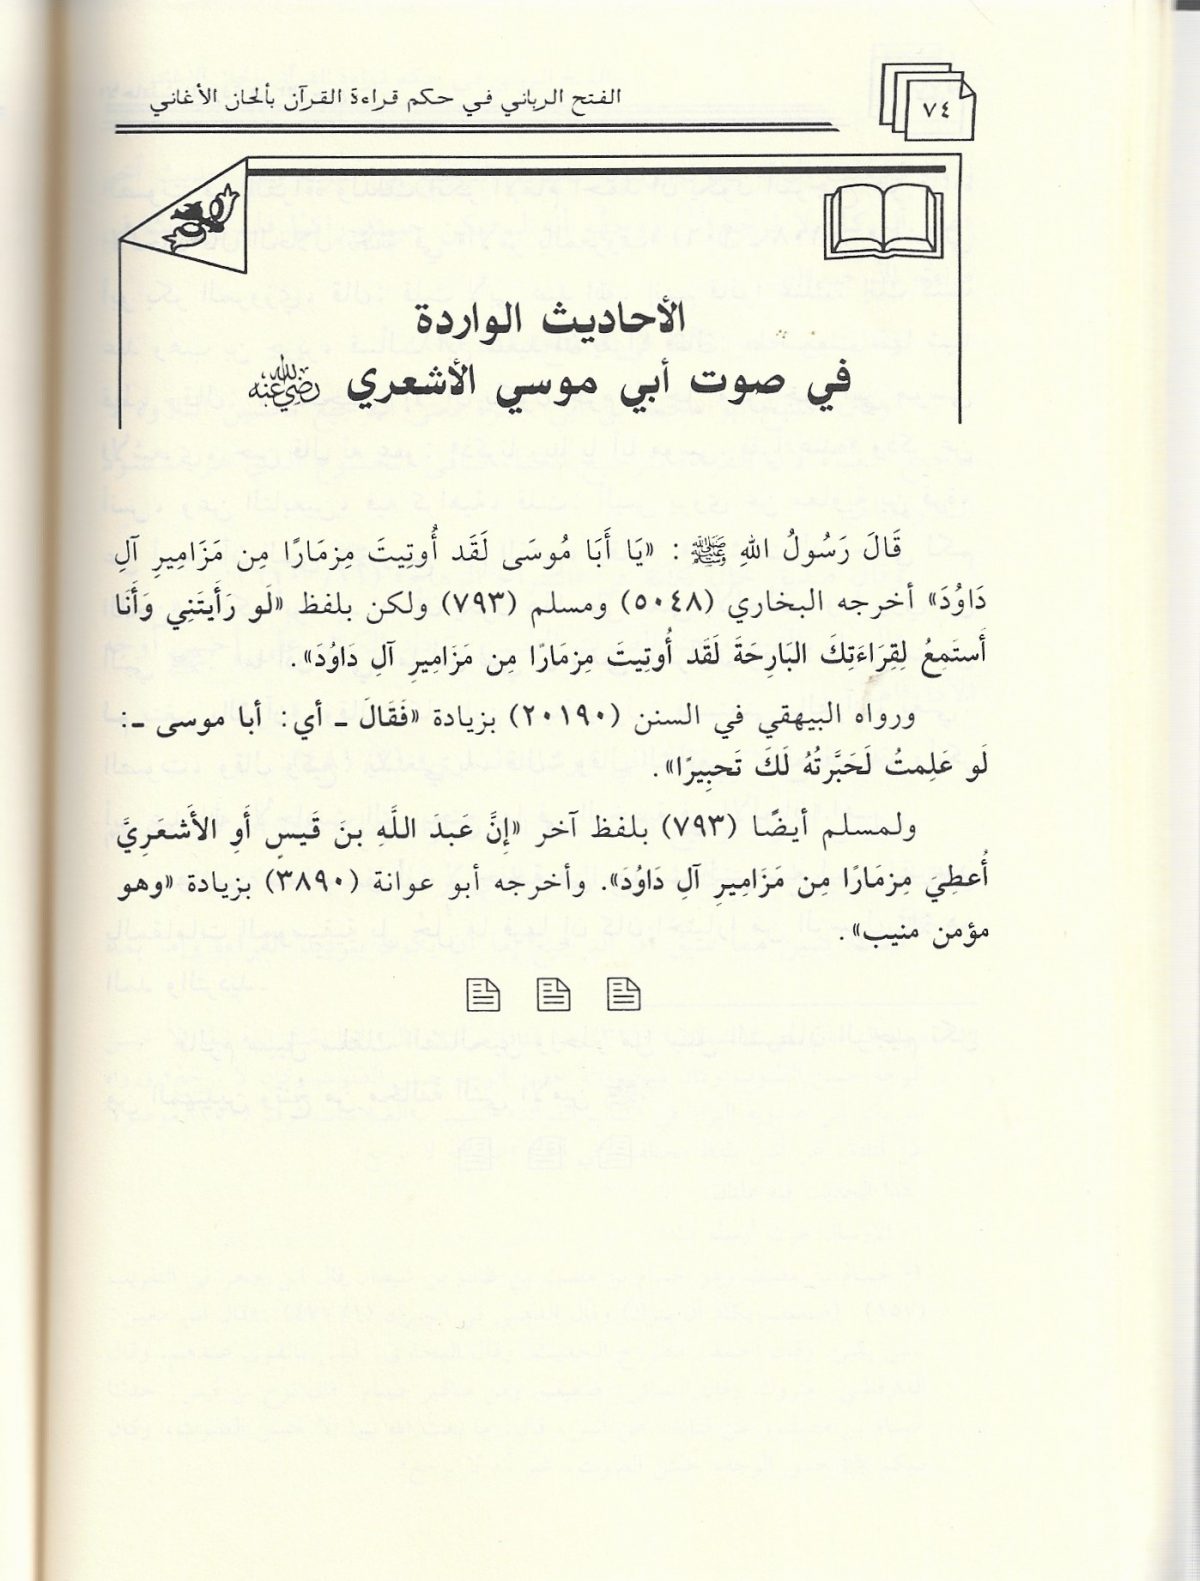 الفتح الرباني في حكم قراءة القرآن بألحان الأغاني
٧٤
الأحاديث الواردة
في صوت أبي موسي الأشعري رضي الله عنه
قَالَ رَسُولُ اللهِ ﷺ : «يَا أَبَا مُوسَى لَقَد أُوتِيتَ مِزمَارًا مِن مَزَامِيرِ آلِ
دَاوُدَ» أخرجه البخاري (٥٠٤٨) ومسلم (٧٩٣) ولكن بلفظ «لَو رَأَيتَنِي وَأَنَا
أَستَمِعُ لِقِرَاءَتِكَ البَارِحَةَ لَقَد أُوتِيتَ مِزمَارًا مِن مَزَامِيرِ آلِ دَاوُدَ».
ورواه البيهقي في السنن (٢٠١٩٠) بزيادة «فَقَالَ ـ أي: أبا موسى ـ:
لَو عَلِمتُ لَحَبَّرتُهُ لَكَ تَحبِيرًا».
ولمسلم أيضًا (٧٩٣) بلفظ آخر «إِنَّ عَبدَ اللَّهِ بنَ قَيسٍ أَوِ الأَشعَرِيَّ
أُعطِيَ مِزمَارًا مِن مَزَامِيرِ آلِ دَاوُدَ». وأخرجه أبو عوانة (٣٨٩٠) بزيادة «وهو
مؤمن منيب».